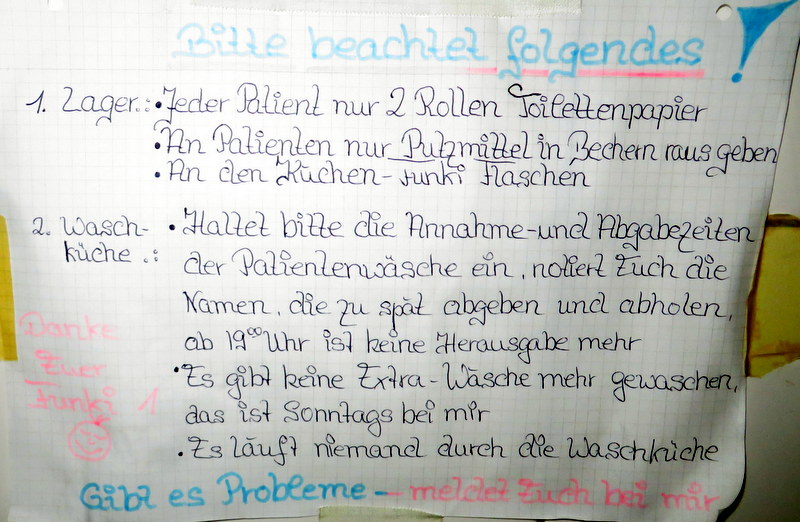 Bitte beachtet folgendes!
1. Lager.: • Jeder Patient nur 2 Rollen Toilettenpapier
• An Patienten nur Putzmittel in Bechern raus geben
• An den Küchen-Funki Flaschen
2. Wasch- • Haltet bitte die Annahme-und Abgabezeiten
küche.: der Patientenwäsche ein, notiert Euch die
Namen, die zu spät abgeben und abholen,
ab 19⁰⁰ Uhr ist keine Herausgabe mehr
• Es gibt keine Extra-Wäsche mehr gewaschen,
das ist Sonntags bei mir
• Es läuft niemand durch die Waschküche
Danke
Euer
Funki 1
Gibt es Probleme - meldet Euch bei mir